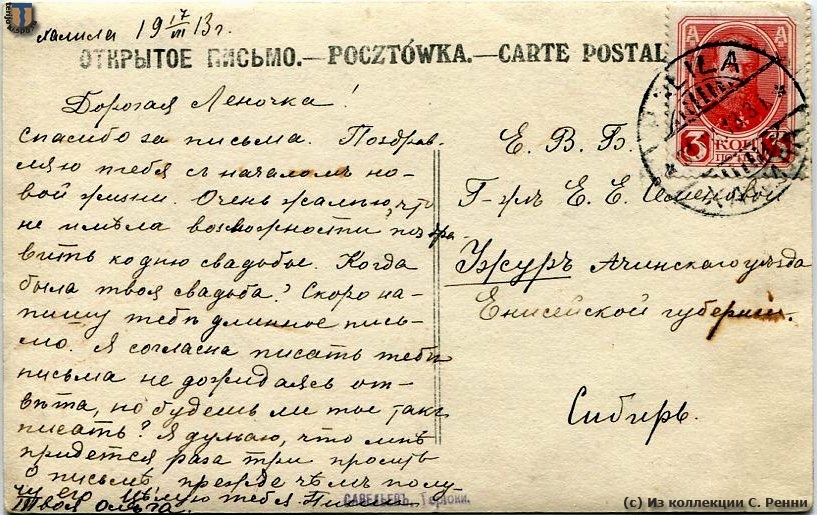 Халила 19 17/III 13 г.
ОТКРЫТОЕ ПИСЬМО.—POCZTÓWKA.—CARTE POSTAL
Дорогая Леночка!
Спасибо за письма. Поздрав-
ляю тебя съ началомъ но-
вой жизни. Очень жалѣю, что
не имѣла возможности поздра-
вить ко дню свадьбы. Когда
была твоя свадьба? Скоро на-
пишу тебѣ длинное пись-
мо. Я согласна писать тебѣ
письма не дожидаясь от-
вѣта, но будешь ли ты такъ
писать? Я думаю, что мнѣ
придется раза три просить
о письмѣ, прежде чѣмъ полу-
чу его. Цѣлую тебя. Пиши
Твоя Ольга.
Е. В. Б.
Г-жѣ Е. Е. Семеновой
Ужуръ Ачинскаго уѣзда
Енисейской губернии.
Сибирь.
3 КОП
HALILA
САВЕЛЬЕВЪ, Теріоки.
(c) Из коллекции С. Ренни